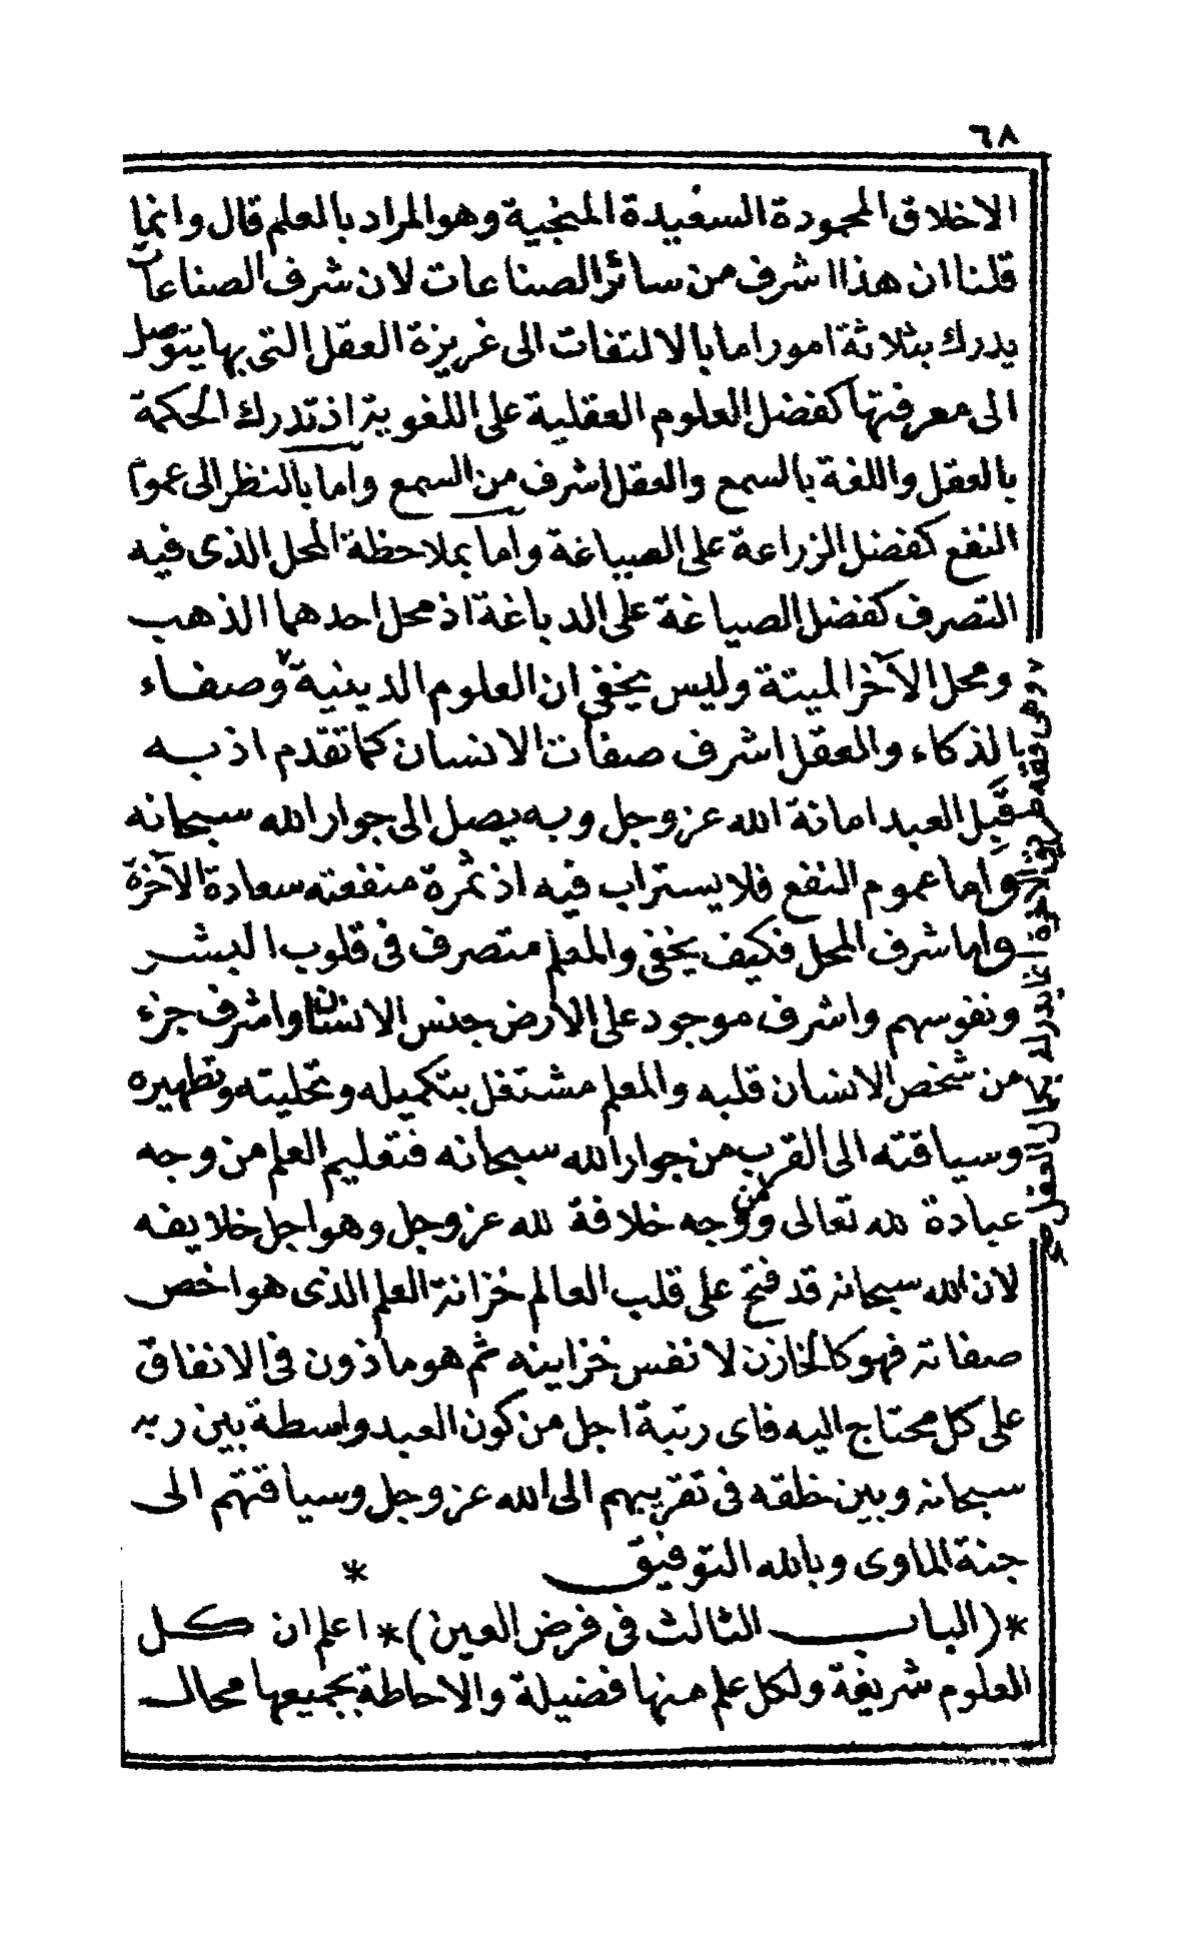 ٦٨
الاخلاق المحمودة السعيدة المنجية وهو المراد بالعلم قال وانما
قلنا ان هذا اشرف من سائر الصناعات لان شرف الصناعات
يدرك بثلاثة امور اما بالالتفات الى غريزة العقل التى بها يتوصل
الى معرفتها كفضل العلوم العقلية على اللغوية اذ تدرك الحكمة
بالعقل واللغة بالسمع والعقل اشرف من السمع واما بالنظر الى عموم
النفع كفضل الزراعة على الصياغة واما بملاحظة المحل الذى فيه
التصرف كفضل الصياغة على الدباغة اذ محل احدهما الذهب
ومحل الآخر الميتة وليس يخفى ان العلوم الدينية وصفاء
بالذكاء والعقل اشرف صفات الانسان كما تقدم اذ به
قَبِل العبد امانة الله عز وجل وبه يصل الى جوار الله سبحانه
واما عموم النفع فلا يستراب فيه اذ ثمرة منفعته سعادة الآخرة
واما شرف المحل فكيف يخفى والمعلم متصرف فى قلوب البشر
ونفوسهم واشرف موجود على الارض جنس الانسان واشرف جزء
من شخص الانسان قلبه والمعلم مشتغل بتكميله وتحليته وتطهيره
وسياقته الى القرب من جوار الله سبحانه فتعليم العلم من وجه
عبادة لله تعالى ومن وجه خلافة لله عز وجل وهو اجل خلايفه
لان الله سبحانه قد فتح على قلب العالم خزانة العلم الذى هو اخص
صفاته فهو كالخازن لانفس خزاينه ثم هو ماذون فى الانفاق
على كل محتاج اليه فاى رتبة اجل من كون العبد واسطة بين ربه
سبحانه وبين خلقه فى تقريبهم الى الله عز وجل وسياقتهم الى
جنة الماوى وبالله التوفيق *
*(الباب الثالث فى فرض العين)* اعلم ان كل
العلوم شريفة ولكل علم منها فضيلة والاحاطة بجميعها محال
وهى فقه طريق الآخرة انما يدرك بكمال العقل صح